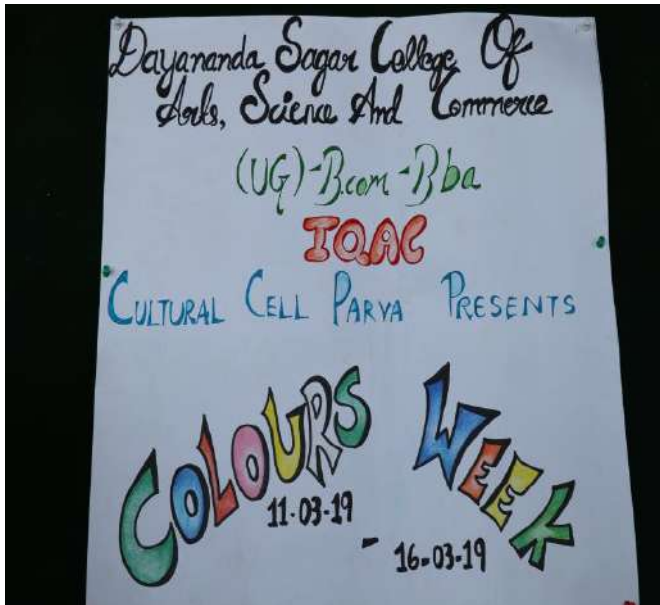 Dayananda Sagar College Of
Arts, Science And Commerce
(UG)-B.com-Bba
IQAC
CULTURAL CELL PARVA PRESENTS
COLOURS WEEK
11-03-19
- 16-03-19